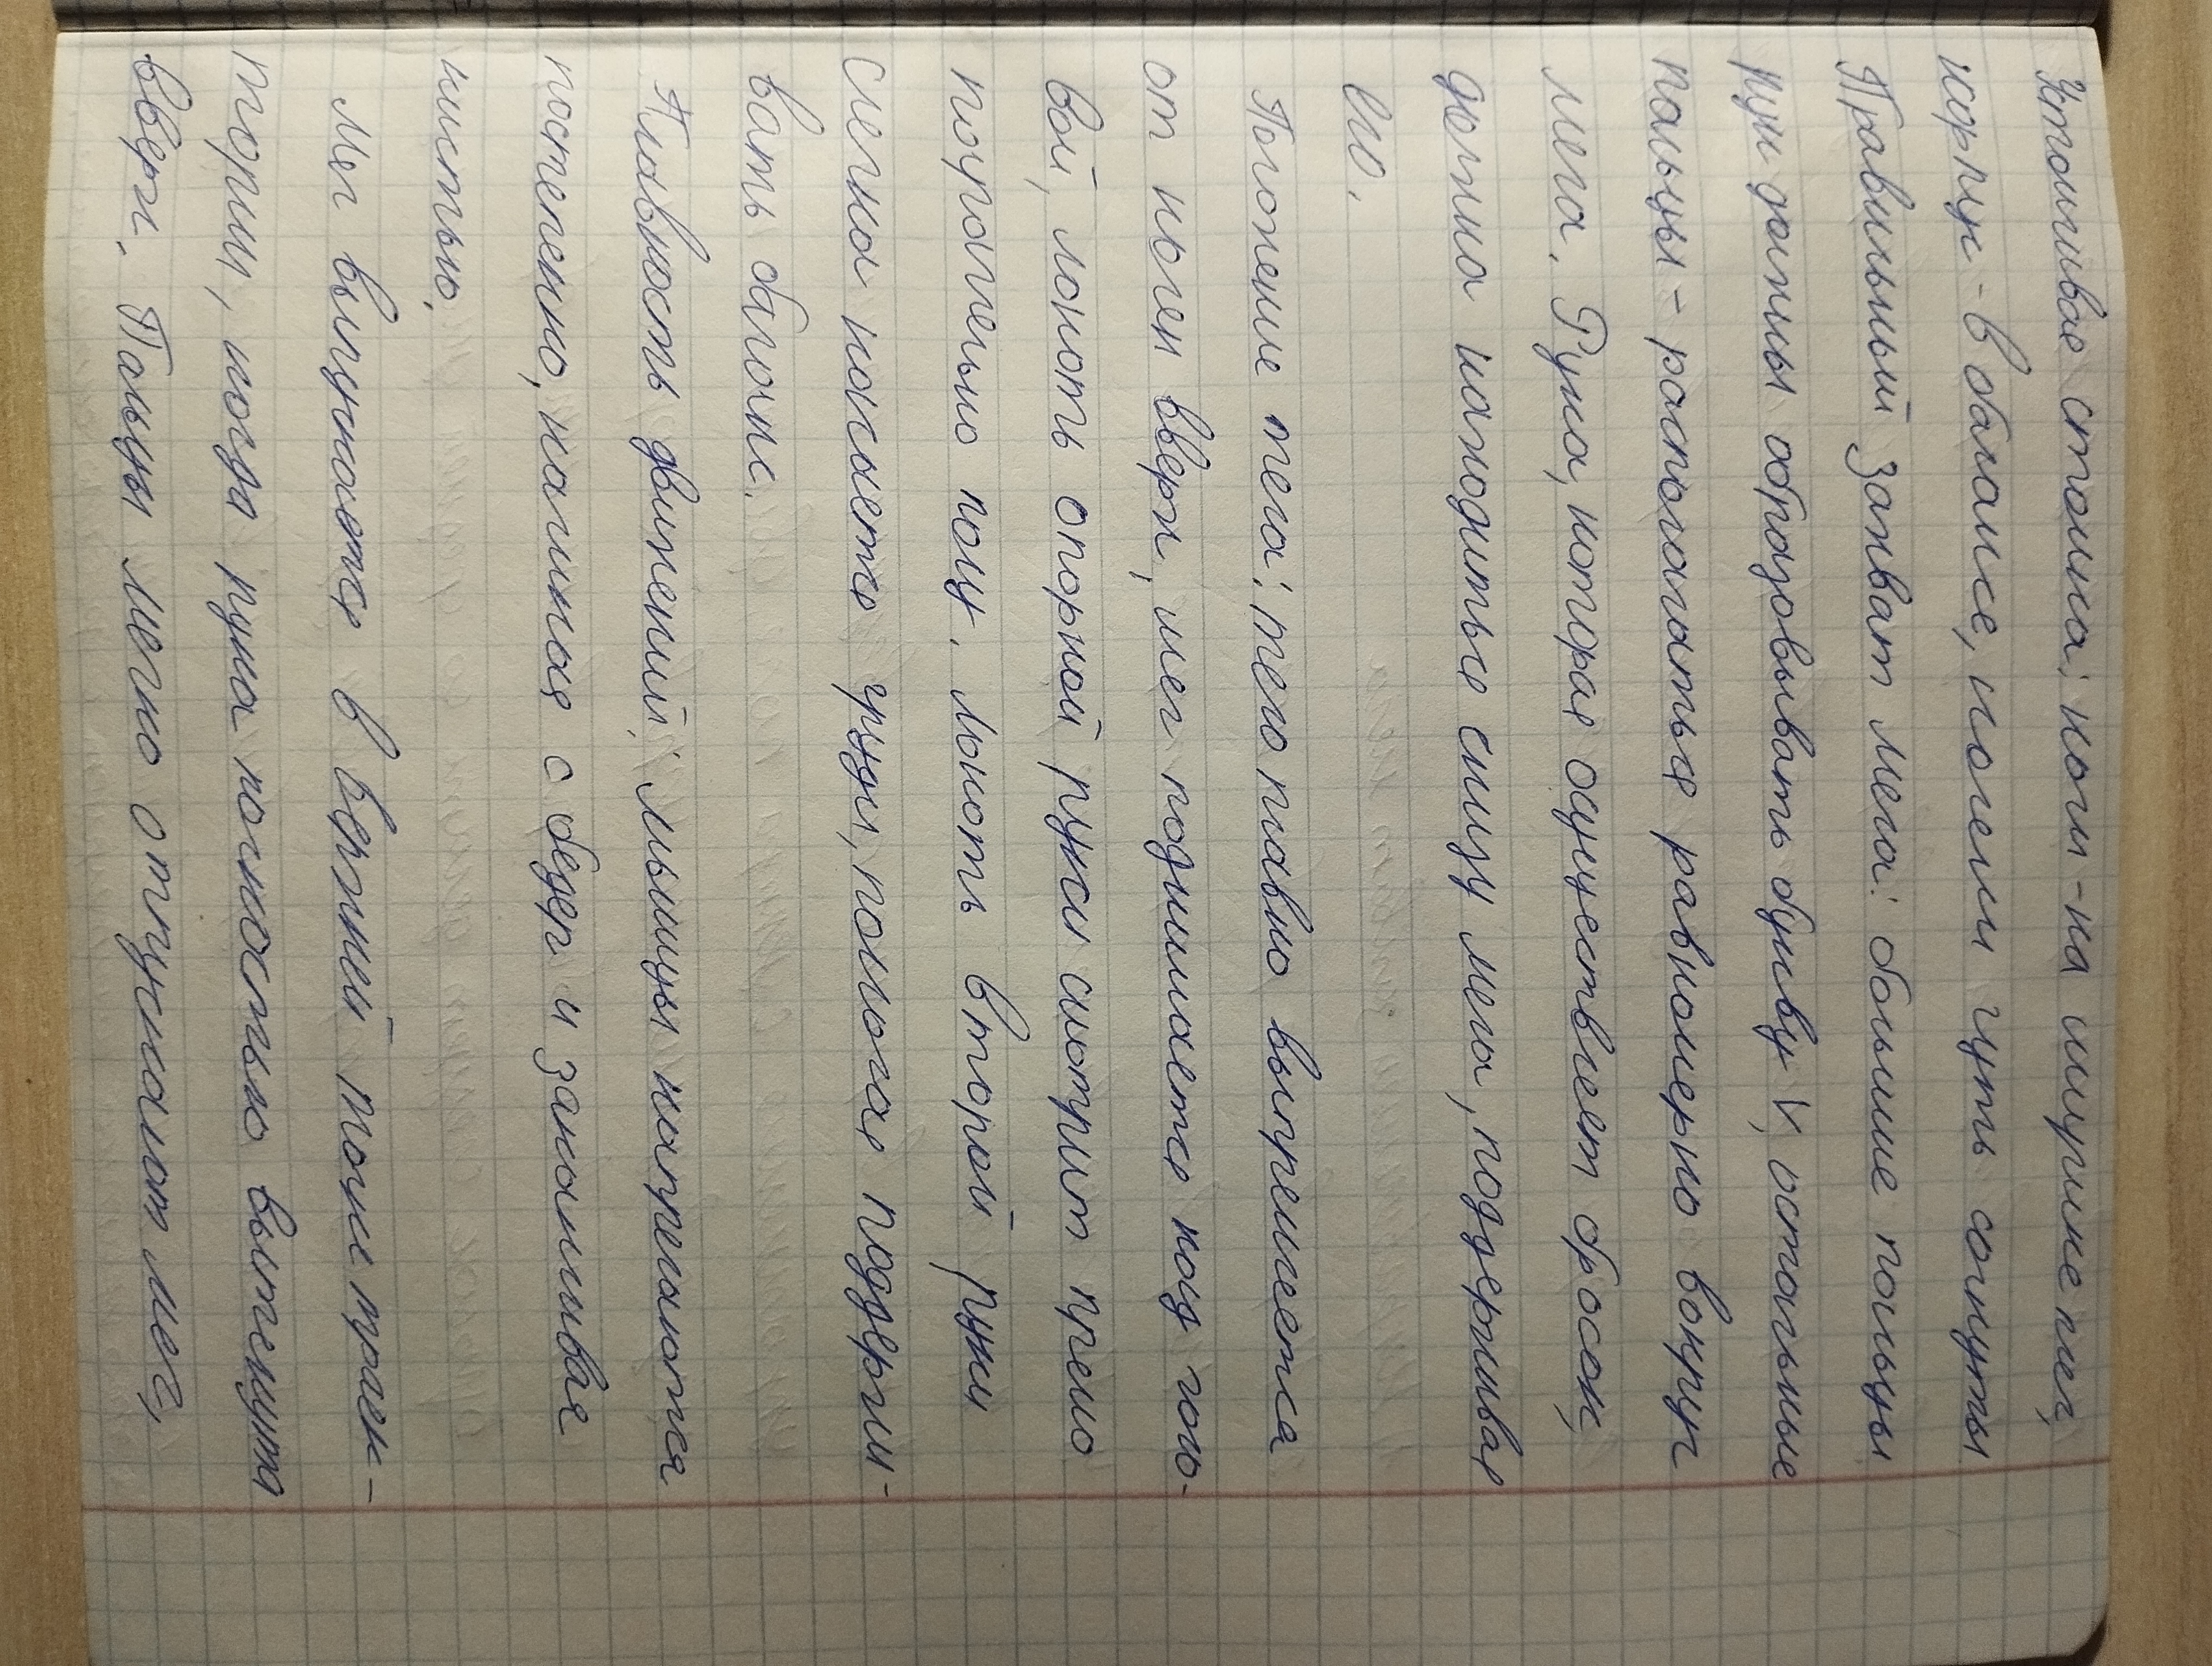 Устойчивая стойка: ноги - на ширине плеч,
корпус - в балансе, колени чуть согнуты
Правильный захват мяча: большие пальцы
рук должны образовывать букву V, остальные
пальцы - располагаться равномерно вокруг
мяча. Рука, которая осуществляет бросок,
должна находиться снизу мяча, поддерживая
его.
Положение тела: тело плавно выпрямляется
от ног и вверх, мяч поднимается над голо-
вой, локоть опорной руки смотрит прямо
параллельно полу. Локоть второй руки
слегка касается груди, помогая поддержи-
вать баланс.
Плавность движений: мышцы напрягаются
постепенно, начиная с бедер и заканчивая
кистью.
Мяч выпускается в верхней точке траек-
тории, когда рука полностью вытянута
вверх. Пальцы мягко отпускают мяч,